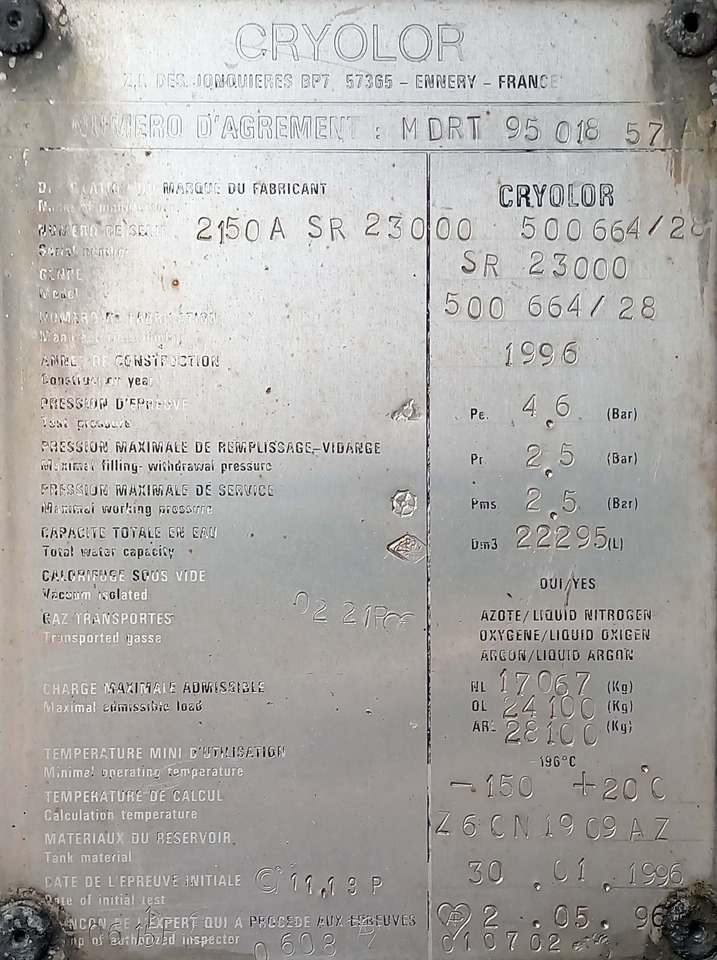 CRYOLOR
Z.I. DES JONQUIERES BP7 57365 - ENNERY - FRANCE
NUMERO D'AGREMENT : MDRT 95 018 57
MARQUE DU FABRICANT CRYOLOR
Name of
NUMERO DE 2150A SR 23000 500664/28
Serial number
GENRE SR 23000
Model
NUMERO 500 664/28
ANNEE DE CONSTRUCTION 1996
Construction year
PRESSION D'EPREUVE Pe. 4,6 (Bar)
Test pressure
PRESSION MAXIMALE DE REMPLISSAGE-VIDANGE Pr 2,5 (Bar)
Maximal filling- withdrawal pressure
PRESSION MAXIMALE DE SERVICE Pms 2,5 (Bar)
Maximal working pressure
CAPACITE TOTALE EN EAU Dm3 22295(L)
Total water capacity
CALORIFUGE SOUS VIDE OUI/YES
Vacuum isolated
GAZ TRANSPORTES AZOTE/LIQUID NITROGEN
Transported gasse OXYGENE/LIQUID OXIGEN
ARGON/LIQUID ARGON
CHARGE MAXIMALE ADMISSIBLE NL 17067 (Kg)
Maximal admissible load OL 24100 (Kg)
AR 28100 (Kg)
TEMPERATURE MINI D'UTILISATION -196°C
Minimal operating temperature
TEMPERATURE DE CALCUL -150 +20°C
Calculation temperature
MATERIAUX DU RESERVOIR Z6CN1909AZ
Tank material
DATE DE L'EPREUVE INITIALE 11,13 P 30 .01 .1996
Date of initial test
DE L'EXPERT QUI A PROCEDE AUX EPREUVES 2 .05. 96
of authorized inspector 0608 010702